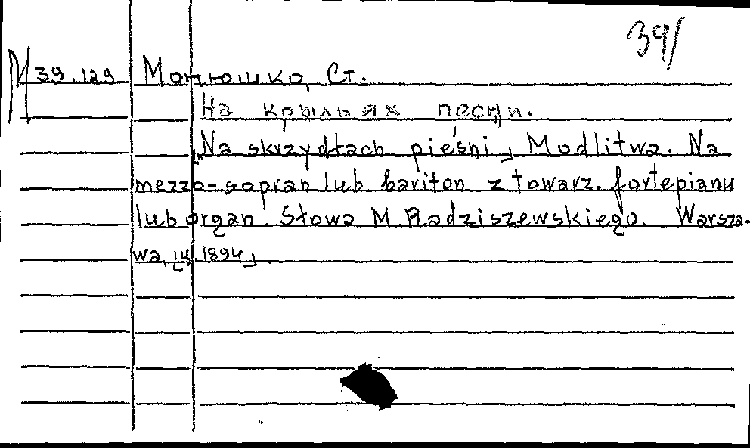 39/
M 39.129 Монюшко, Ст.
На крыльях песни.
„Na skrzydłach pieśni„ Modlitwa. Na
mezzo-sopran lub bariton z towarz. fortepianu
lub organ. Słowa M. Radziszewskiego. Warsza-
wa, 1894